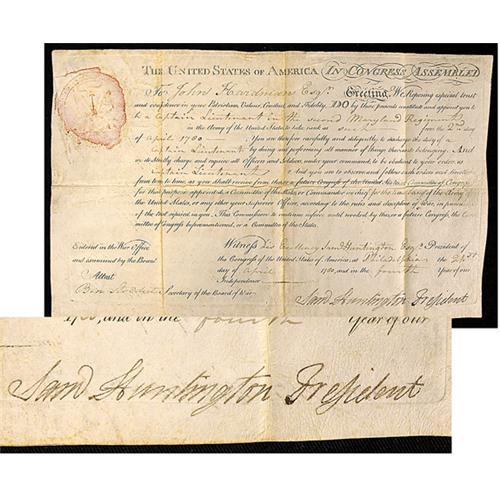 THE UNITED STATES OF AMERICA IN CONGRESS ASSEMBLED
To John Hardman Esqr. Greeting. We Reposing especial trust
and confidence in your Patriotism, Valour, Conduct, and Fidelity, DO by these presents constitute and appoint you to
be a Captain Lieutenant in the second Maryland Regiment
in the Army of the United States to take rank as such from the
April 1780 You are therefore carefully and diligently to discharge the duty of a
Captain Lieutenant by doing and performing all manner of things thereunto belonging. And
we do strictly charge and require all Officers and Soldiers under your command, to be obedient to your orders as
Captain Lieutenant And you are to observe and follow such orders and directions
from time to time, as you shall receive from this or a future Congress of the United States or Committee of Congress
for that purpose appointed, a Committee of the States, or Commander in chief for the time being of the Army of
the United States, or any other your Superior Officer, according to the rules and discipline of War, in pursuance
of the trust reposed in you. This Commission to continue in force until revoked by this, or a future Congress, the
Committee of Congress beforementioned, or a Committee of the States.
Entered in the War Office
and examined by the Board
Attest
Ben Stoddert Secretary of the Board of War
Witness His Excellency Saml Huntington Esqr. President
of the Congress of the United States of America, at Philadelphia the
day of April 1780, and in the fourth Year of our
Independence
Saml Huntington President
and in the fourth Year of our
Saml Huntington President